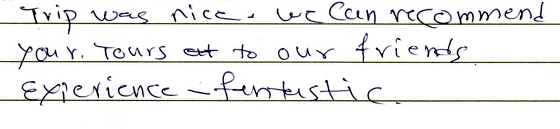 Trip was nice. we Can recommend
your. Tours to our friends
Experience - fentastic.